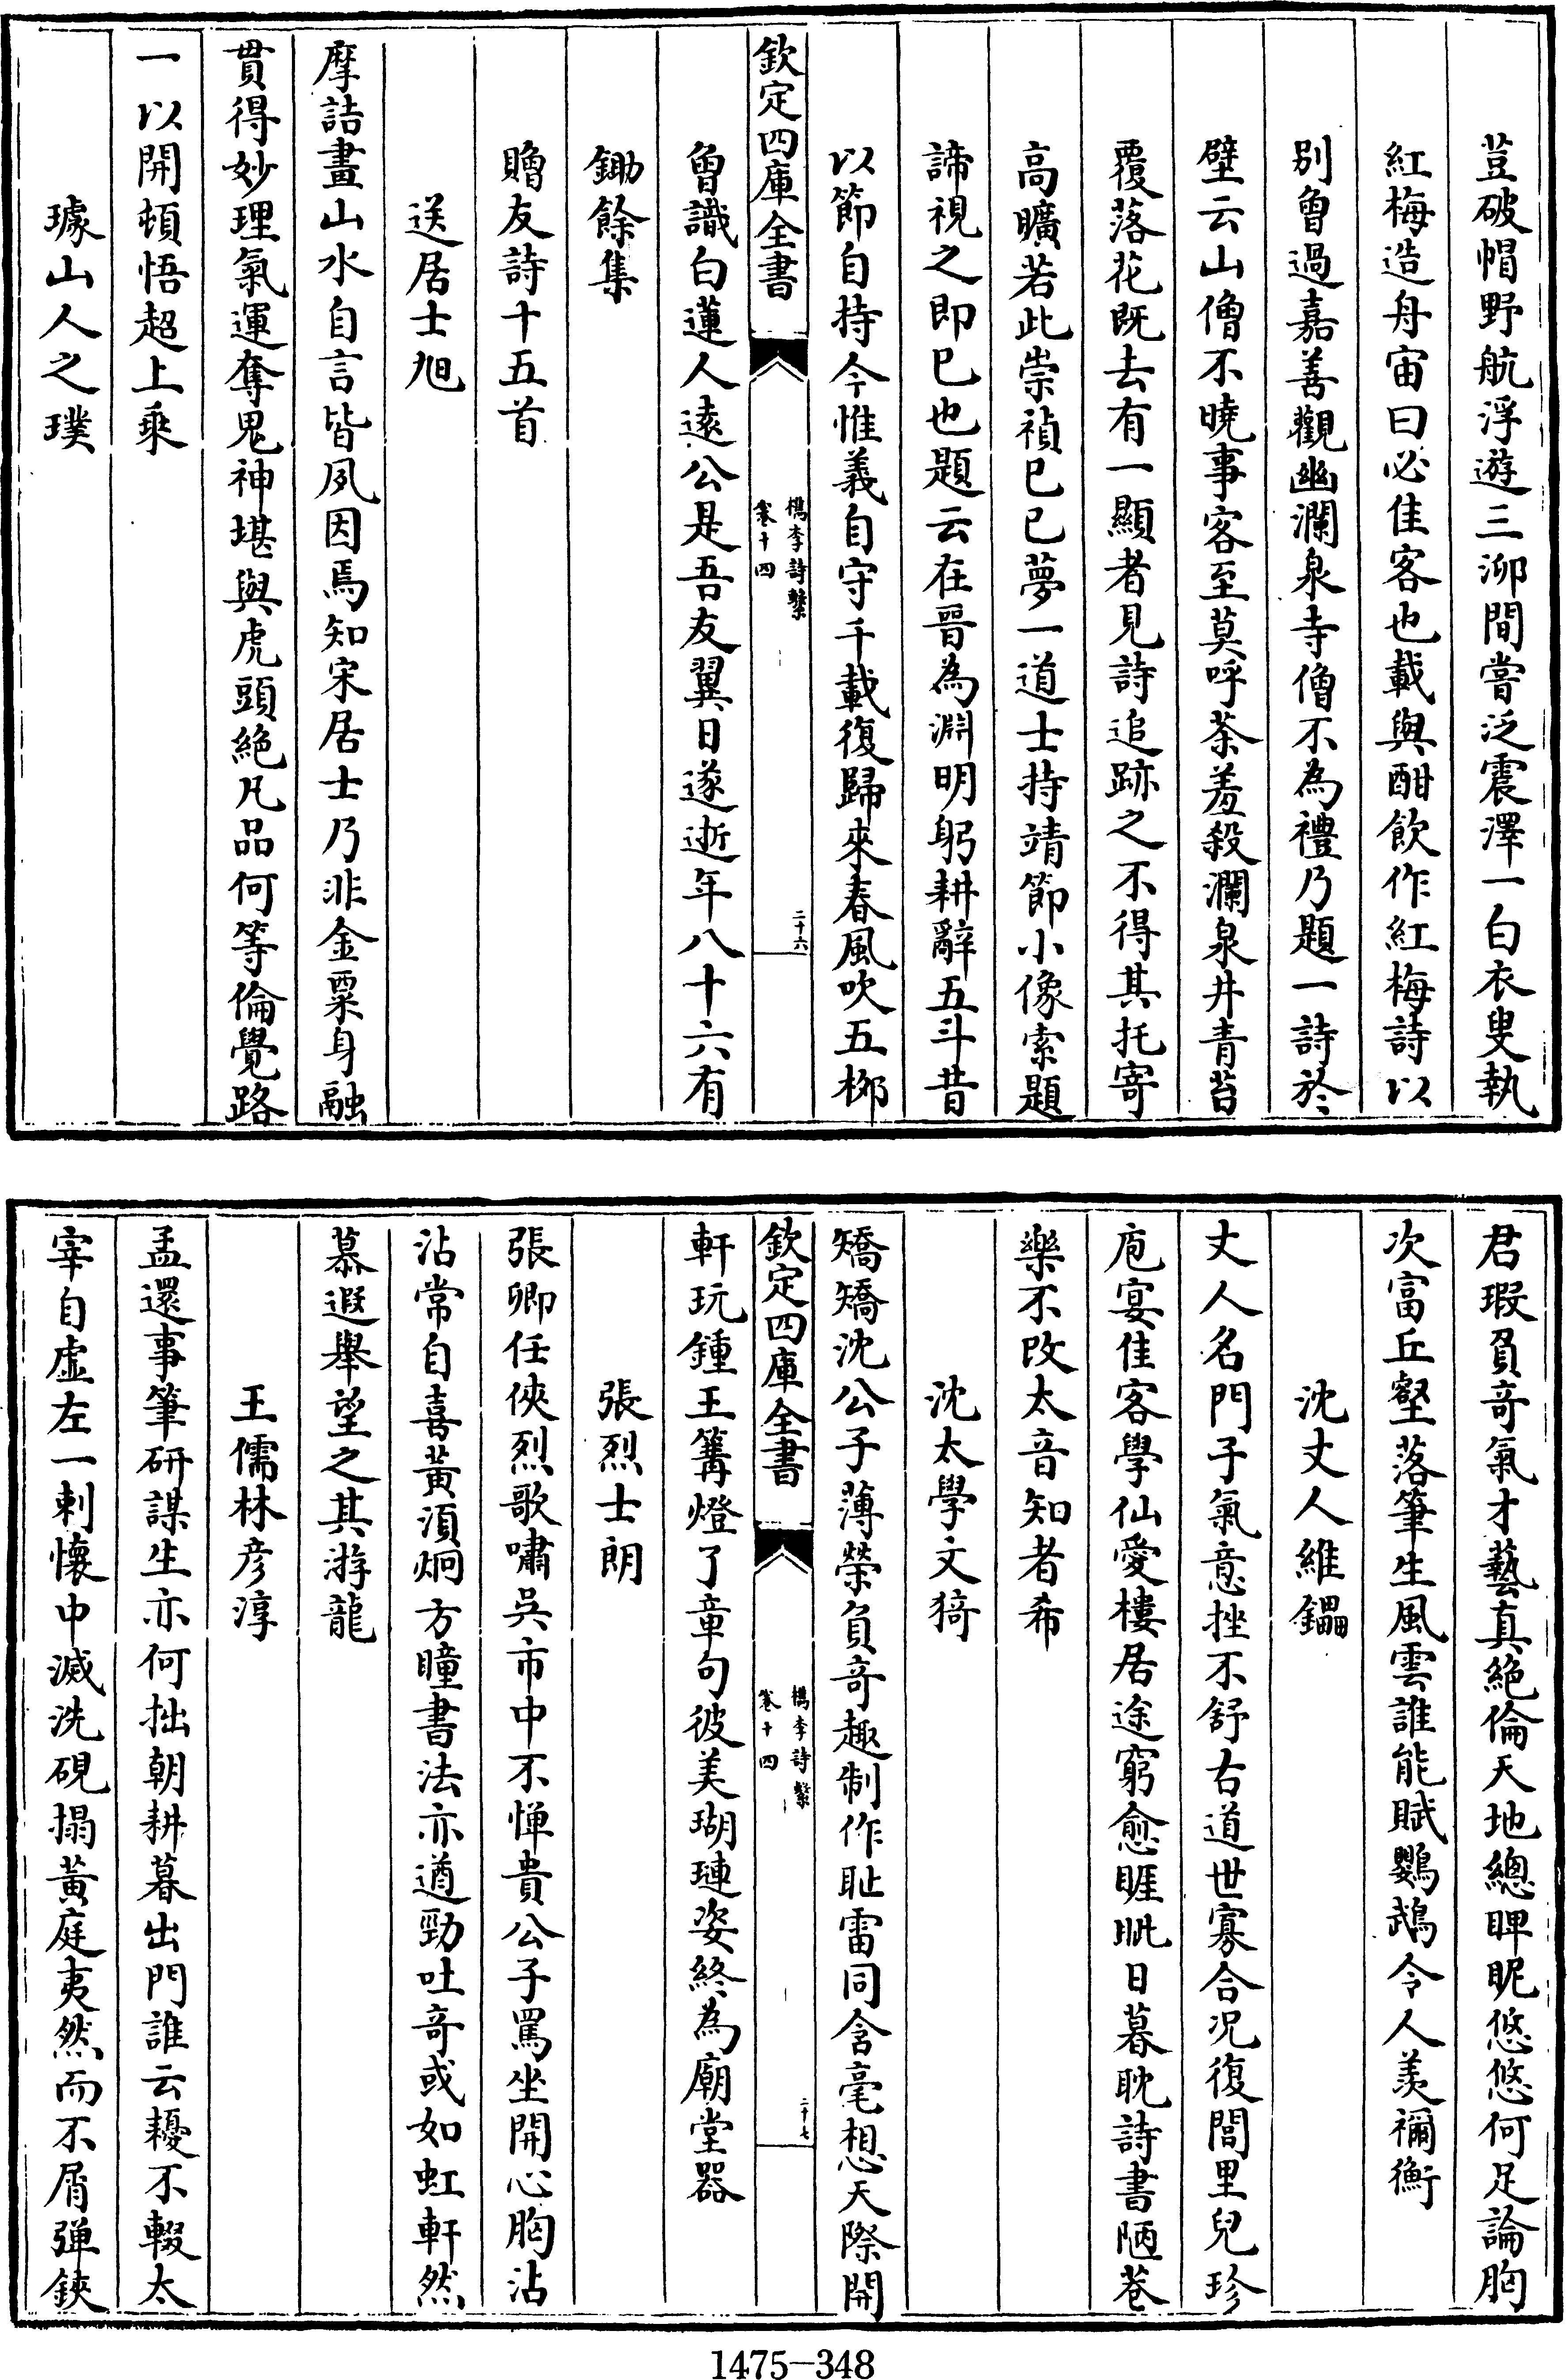 荳破帽野航浮遊三泖間嘗泛震澤一白衣叟執
紅梅造舟宙曰必佳客也載與酣飲作紅梅詩以
別曾過嘉善觀幽瀾泉寺僧不為禮乃題一詩於
壁云山僧不曉事客至莫呼茶羞殺瀾泉井青苔
覆落花既去有一顯者見詩追跡之不得其托寄
高曠若此崇禎己巳夢一道士持靖節小像索題
諦視之即已也題云在晉為淵明躬耕辭五斗昔
以節自持今惟義自守千載復歸來春風吹五栁
欽定四庫全書
檇李詩繫
卷十四
二十六
曾識白蓮人遠公是吾友翼日遂逝年八十六有
鋤餘集
贈友詩十五首
送居士旭
摩詰畫山水自言皆夙因焉知宋居士乃非金粟身融
貫得妙理氣運奪鬼神堪與虎頭絶凡品何等倫覺路
一以開頓悟超上乘
璩山人之璞
君瑕負奇氣才藝真絶倫天地總睥睨悠悠何足論胸
次富丘壑落筆生風雲誰能賦鸚鵡令人羡禰衡
沈丈人維鑘
丈人名門子氣意挫不舒右道世寡合况復閭里兒珍
庖宴佳客學仙愛樓居途窮愈睚眦日暮耽詩書陋巷
樂不改太音知者希
沈太學文猗
矯矯沈公子薄榮負奇趣制作耻雷同含毫想天際開
欽定四庫全書
檇李詩繫
卷十四
二十七
軒玩鍾王篝燈了章句彼美瑚璉姿終為廟堂器
張烈士朗
張卿任俠烈歌嘯吳市中不憚貴公子罵坐開心胸沾
沾常自喜黃須炯方瞳書法亦遒勁吐奇或如虹軒然
慕遐舉望之其游龍
王儒林彦淳
孟還事筆研謀生亦何拙朝耕暮出門誰云耰不輟太
宰自虚左一刺懷中滅洗硯搨黃庭夷然而不屑弹鋏
1475-348